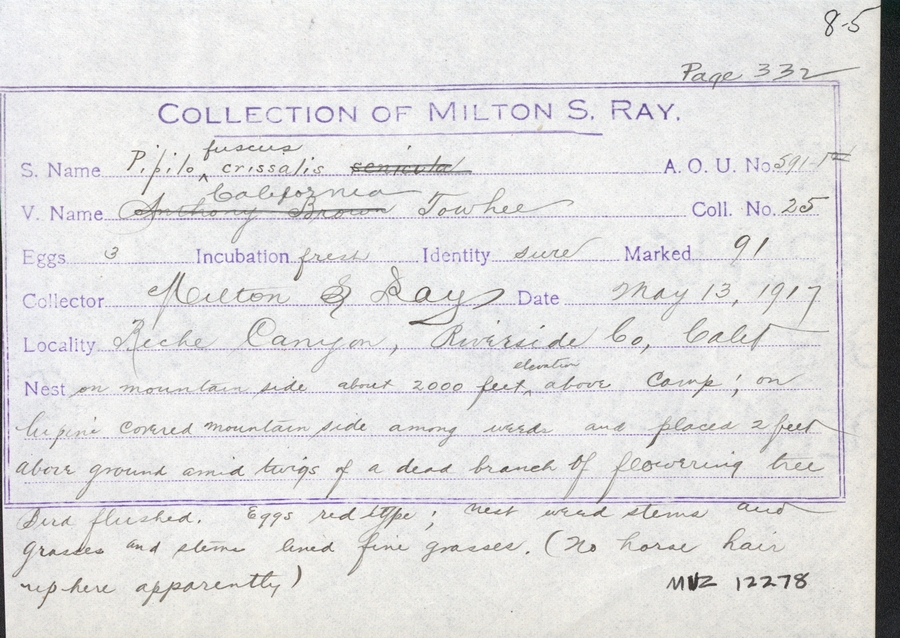 8-5
Page 332
COLLECTION OF MILTON S. RAY.
fuscus
S. Name Pipilo ‸ crissalis senicula A. O. U. No. 591-1
California
V. Name Anthony Brown Towhee Coll. No. 25
Eggs 3 Incubation fresh Identity sure Marked 91
Collector Milton S Ray Date May 13, 1917
Locality Reche Canyon, Riverside Co, Calif
elevation
Nest on mountain side about 2000 feet ‸ above camp; on
lupine covered mountain side among weeds and placed 2 feet
above ground amid twigs of a dead branch of flowering tree
Bird flushed. Eggs red type; nest weed stems and
grasses and stems lined fine grasses. (No horse hair
up here apparently)
MVZ 12278